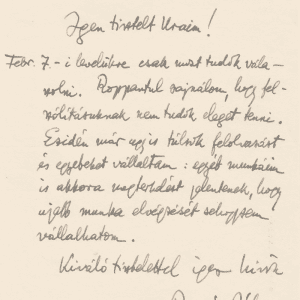 Igen tisztelt Uraim!
Febr. 7.-i levelükre csak most tudok vála-
szolni. Roppantul sajnálom, hogy fel-
szólításuknak nem tudok eleget tenni.
Ezidén már úgyis túlsok felolvasást
és egyebeket vállaltam: egyéb munkáim
is akkora megterhelést jelentenek, hogy
újabb munka elvégzését sehogysem
vállalhatom.
Kiváló tisztelettel igaz hívük